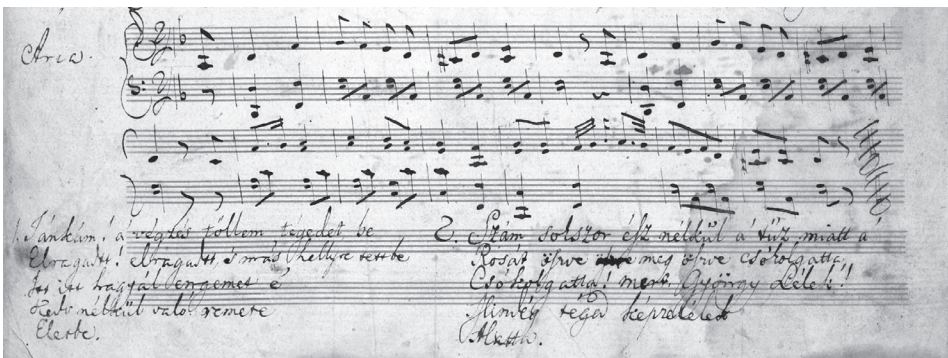 Aria.
1. Jánkám! a végzés töllem tégedet be
Elragadtt! elragadtt s más hellyre tettbe
itt hagyál engemet é
Kedv nélkül való remete
Életbe.
2. Szám sokszor ész nélkül á tűz miatt á
Rosát örve meg örve csókolgatta,
Csókolgatta! mert György Lélek!!
Mindég téged képzelélek
Alatta.